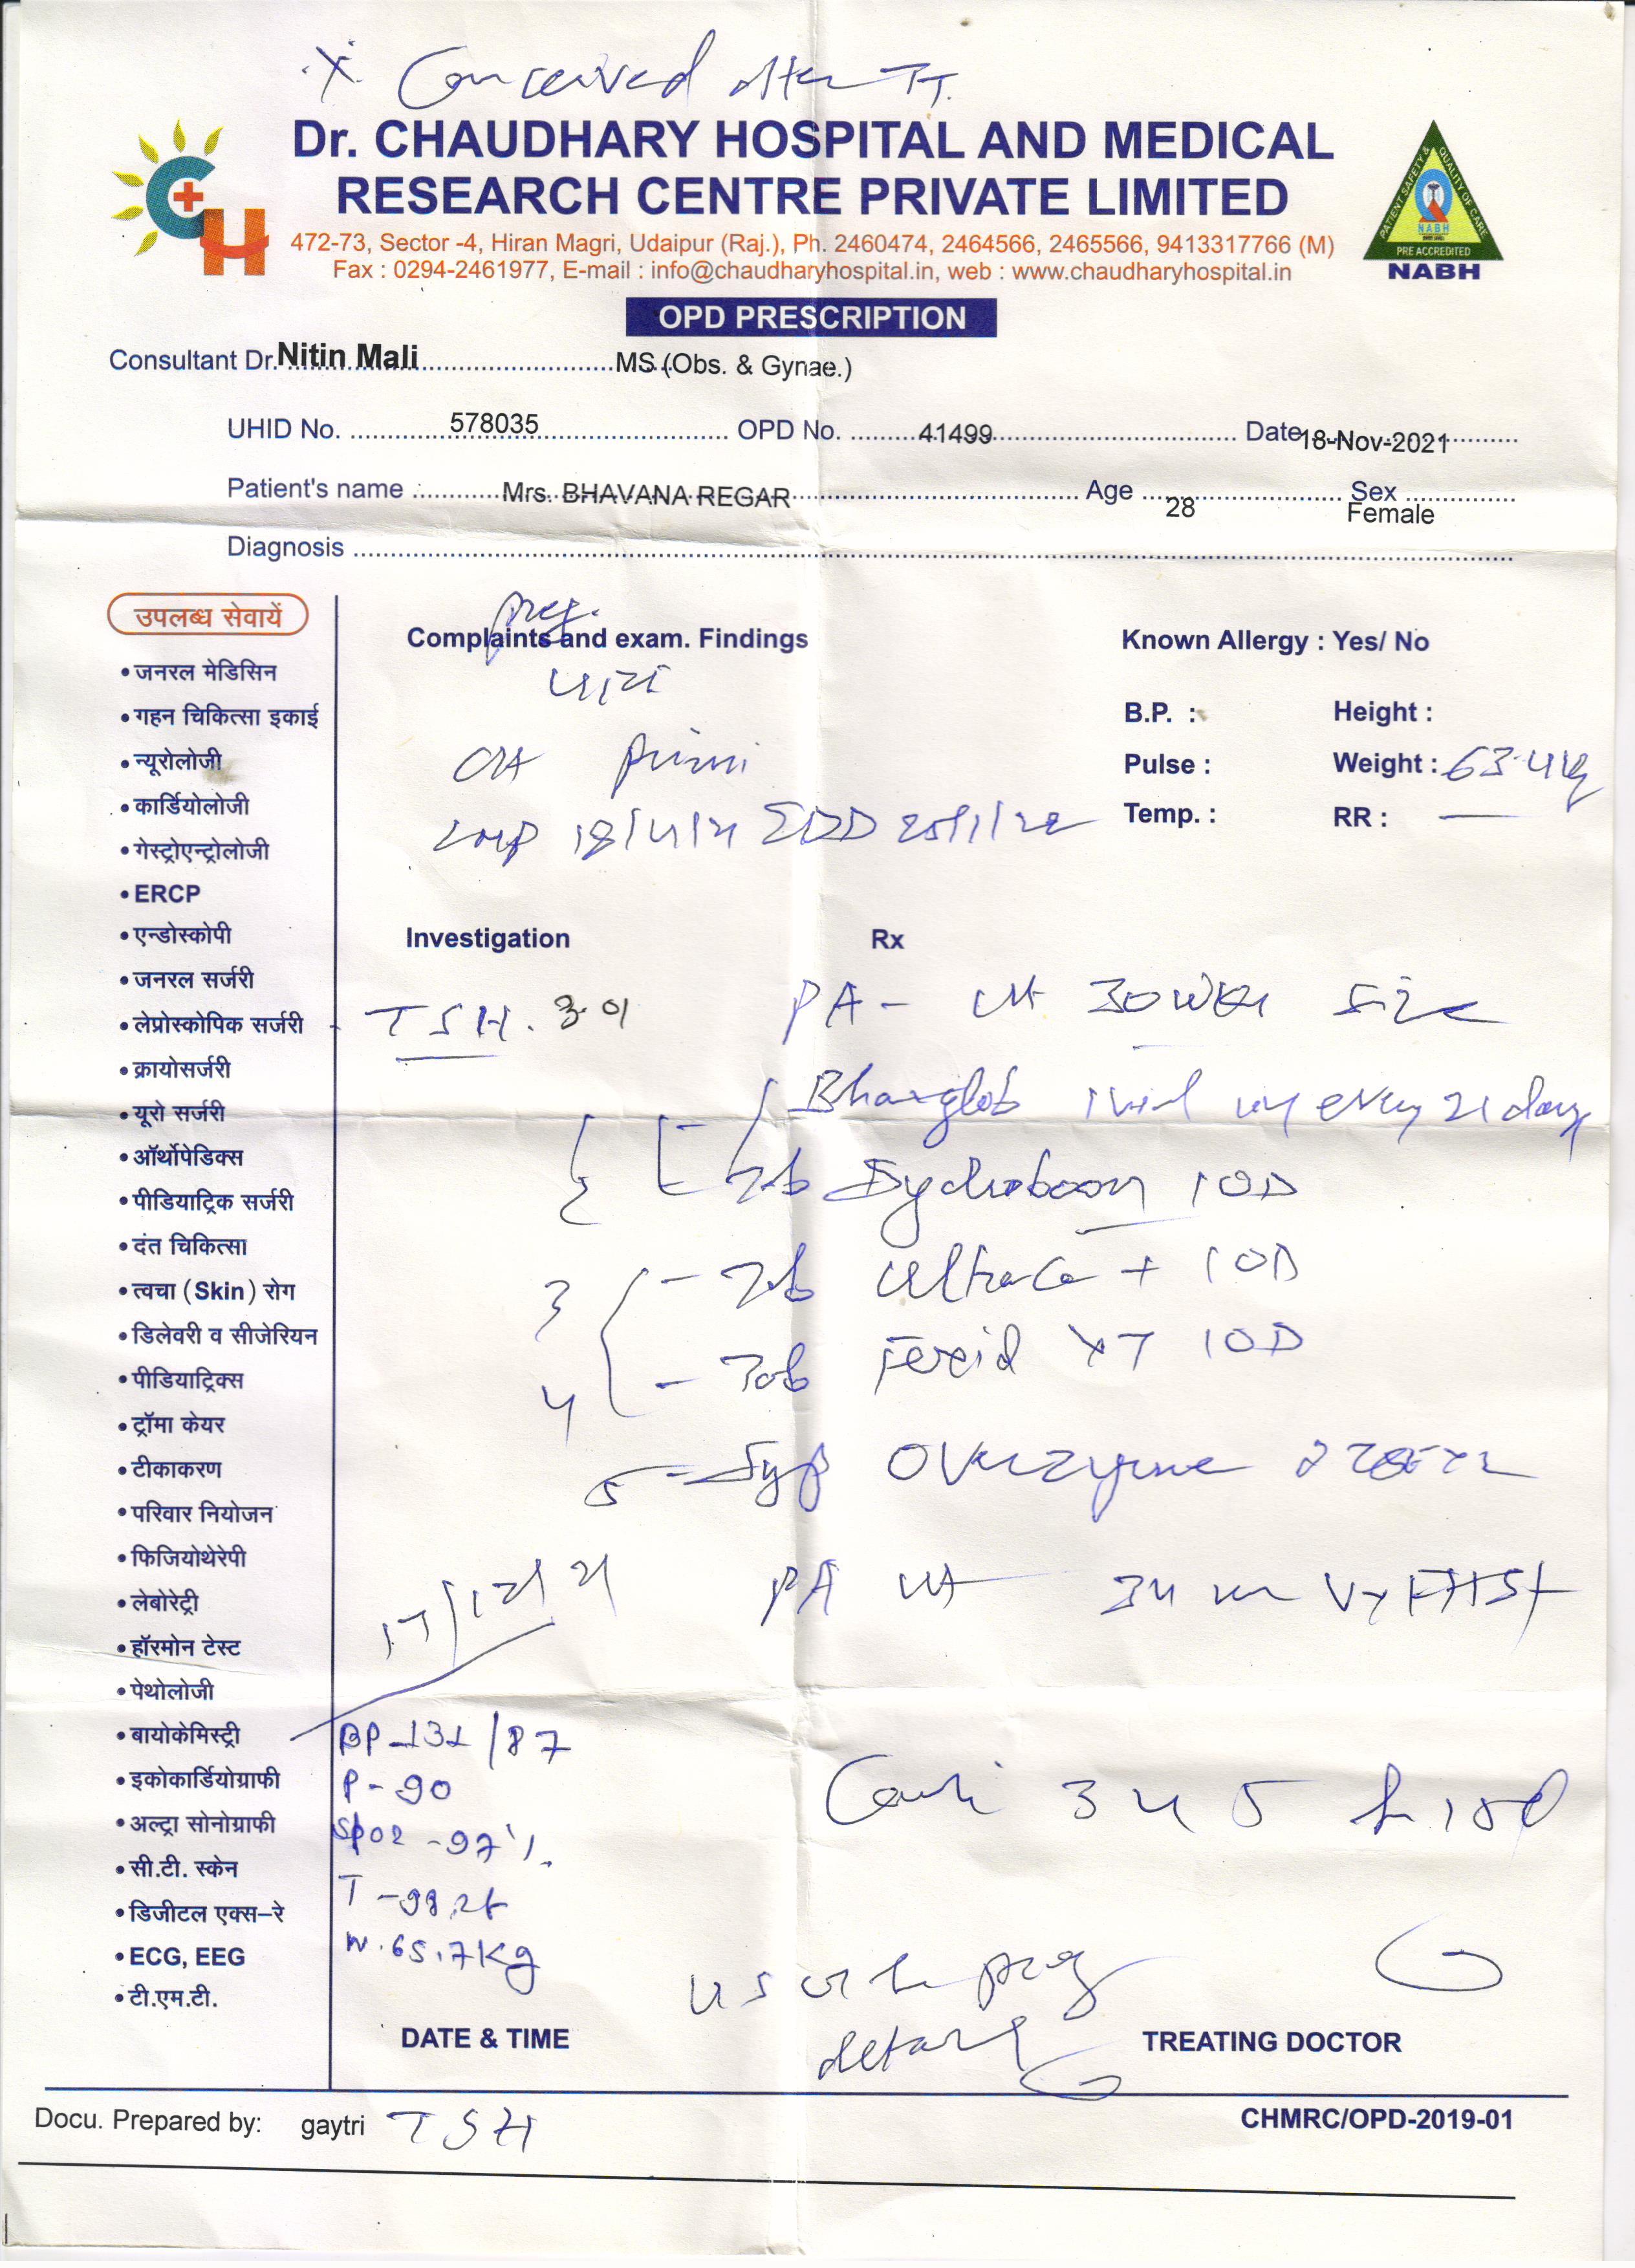 Conceived after TT.
Dr. CHAUDHARY HOSPITAL AND MEDICAL
RESEARCH CENTRE PRIVATE LIMITED
472-73, Sector -4, Hiran Magri, Udaipur (Raj.), Ph. 2460474, 2464566, 2465566, 9413317766 (M)
Fax : 0294-2461977, E-mail : info@chaudharyhospital.in, web : www.chaudharyhospital.in
PATIENT SAFETY & QUALITY OF CARE
NABH
PRE ACCREDITED
NABH
OPD PRESCRIPTION
Consultant Dr. Nitin Mali MS (Obs. & Gynae.)
UHID No. 578035 OPD No. 41499 Date 18-Nov-2021
Patient's name Mrs. BHAVANA REGAR Age 28 Sex Female
Diagnosis
उपलब्ध सेवायें
• जनरल मेडिसिन
• गहन चिकित्सा इकाई
• न्यूरोलोजी
• कार्डियोलोजी
• गेस्ट्रोएन्ट्रोलोजी
• ERCP
• एन्डोस्कोपी
• जनरल सर्जरी
• लेप्रोस्कोपिक सर्जरी
• क्रायोसर्जरी
• यूरो सर्जरी
• ऑर्थोपेडिक्स
• पीडियाट्रिक सर्जरी
• दंत चिकित्सा
• त्वचा (Skin) रोग
• डिलेवरी व सीजेरियन
• पीडियाट्रिक्स
• ट्रॉमा केयर
• टीकाकरण
• परिवार नियोजन
• फिजियोथेरेपी
• लेबोरेट्री
• हॉरमोन टेस्ट
• पेथोलोजी
• बायोकेमिस्ट्री
• इकोकार्डियोग्राफी
• अल्ट्रा सोनोग्राफी
• सी.टी. स्केन
• डिजीटल एक्स-रे
• ECG, EEG
• टी.एम.टी.
preg.
Complaints and exam. Findings
Known Allergy : Yes/ No
B.P. : Height :
Pulse : Weight : 63.4kg
Temp. : RR :
primi
LMP 18/4/21 EDD 25/1/22
Investigation Rx
TSH. 3.01
PA - ut 30 wks size
every 21 day
Tab 1OD
3 - Tab Ultraca + 1OD
4 - Tab XT 1OD
5 - Syp Overzyme
17/12/21
PA ut 34 w Vx FHS+
BP - 131/87
P - 90
SpO2 - 97%
T - 98.2f
W. 65.7Kg
3 4 5
preg
DATE & TIME TREATING DOCTOR
Docu. Prepared by: gaytri TSH
CHMRC/OPD-2019-01